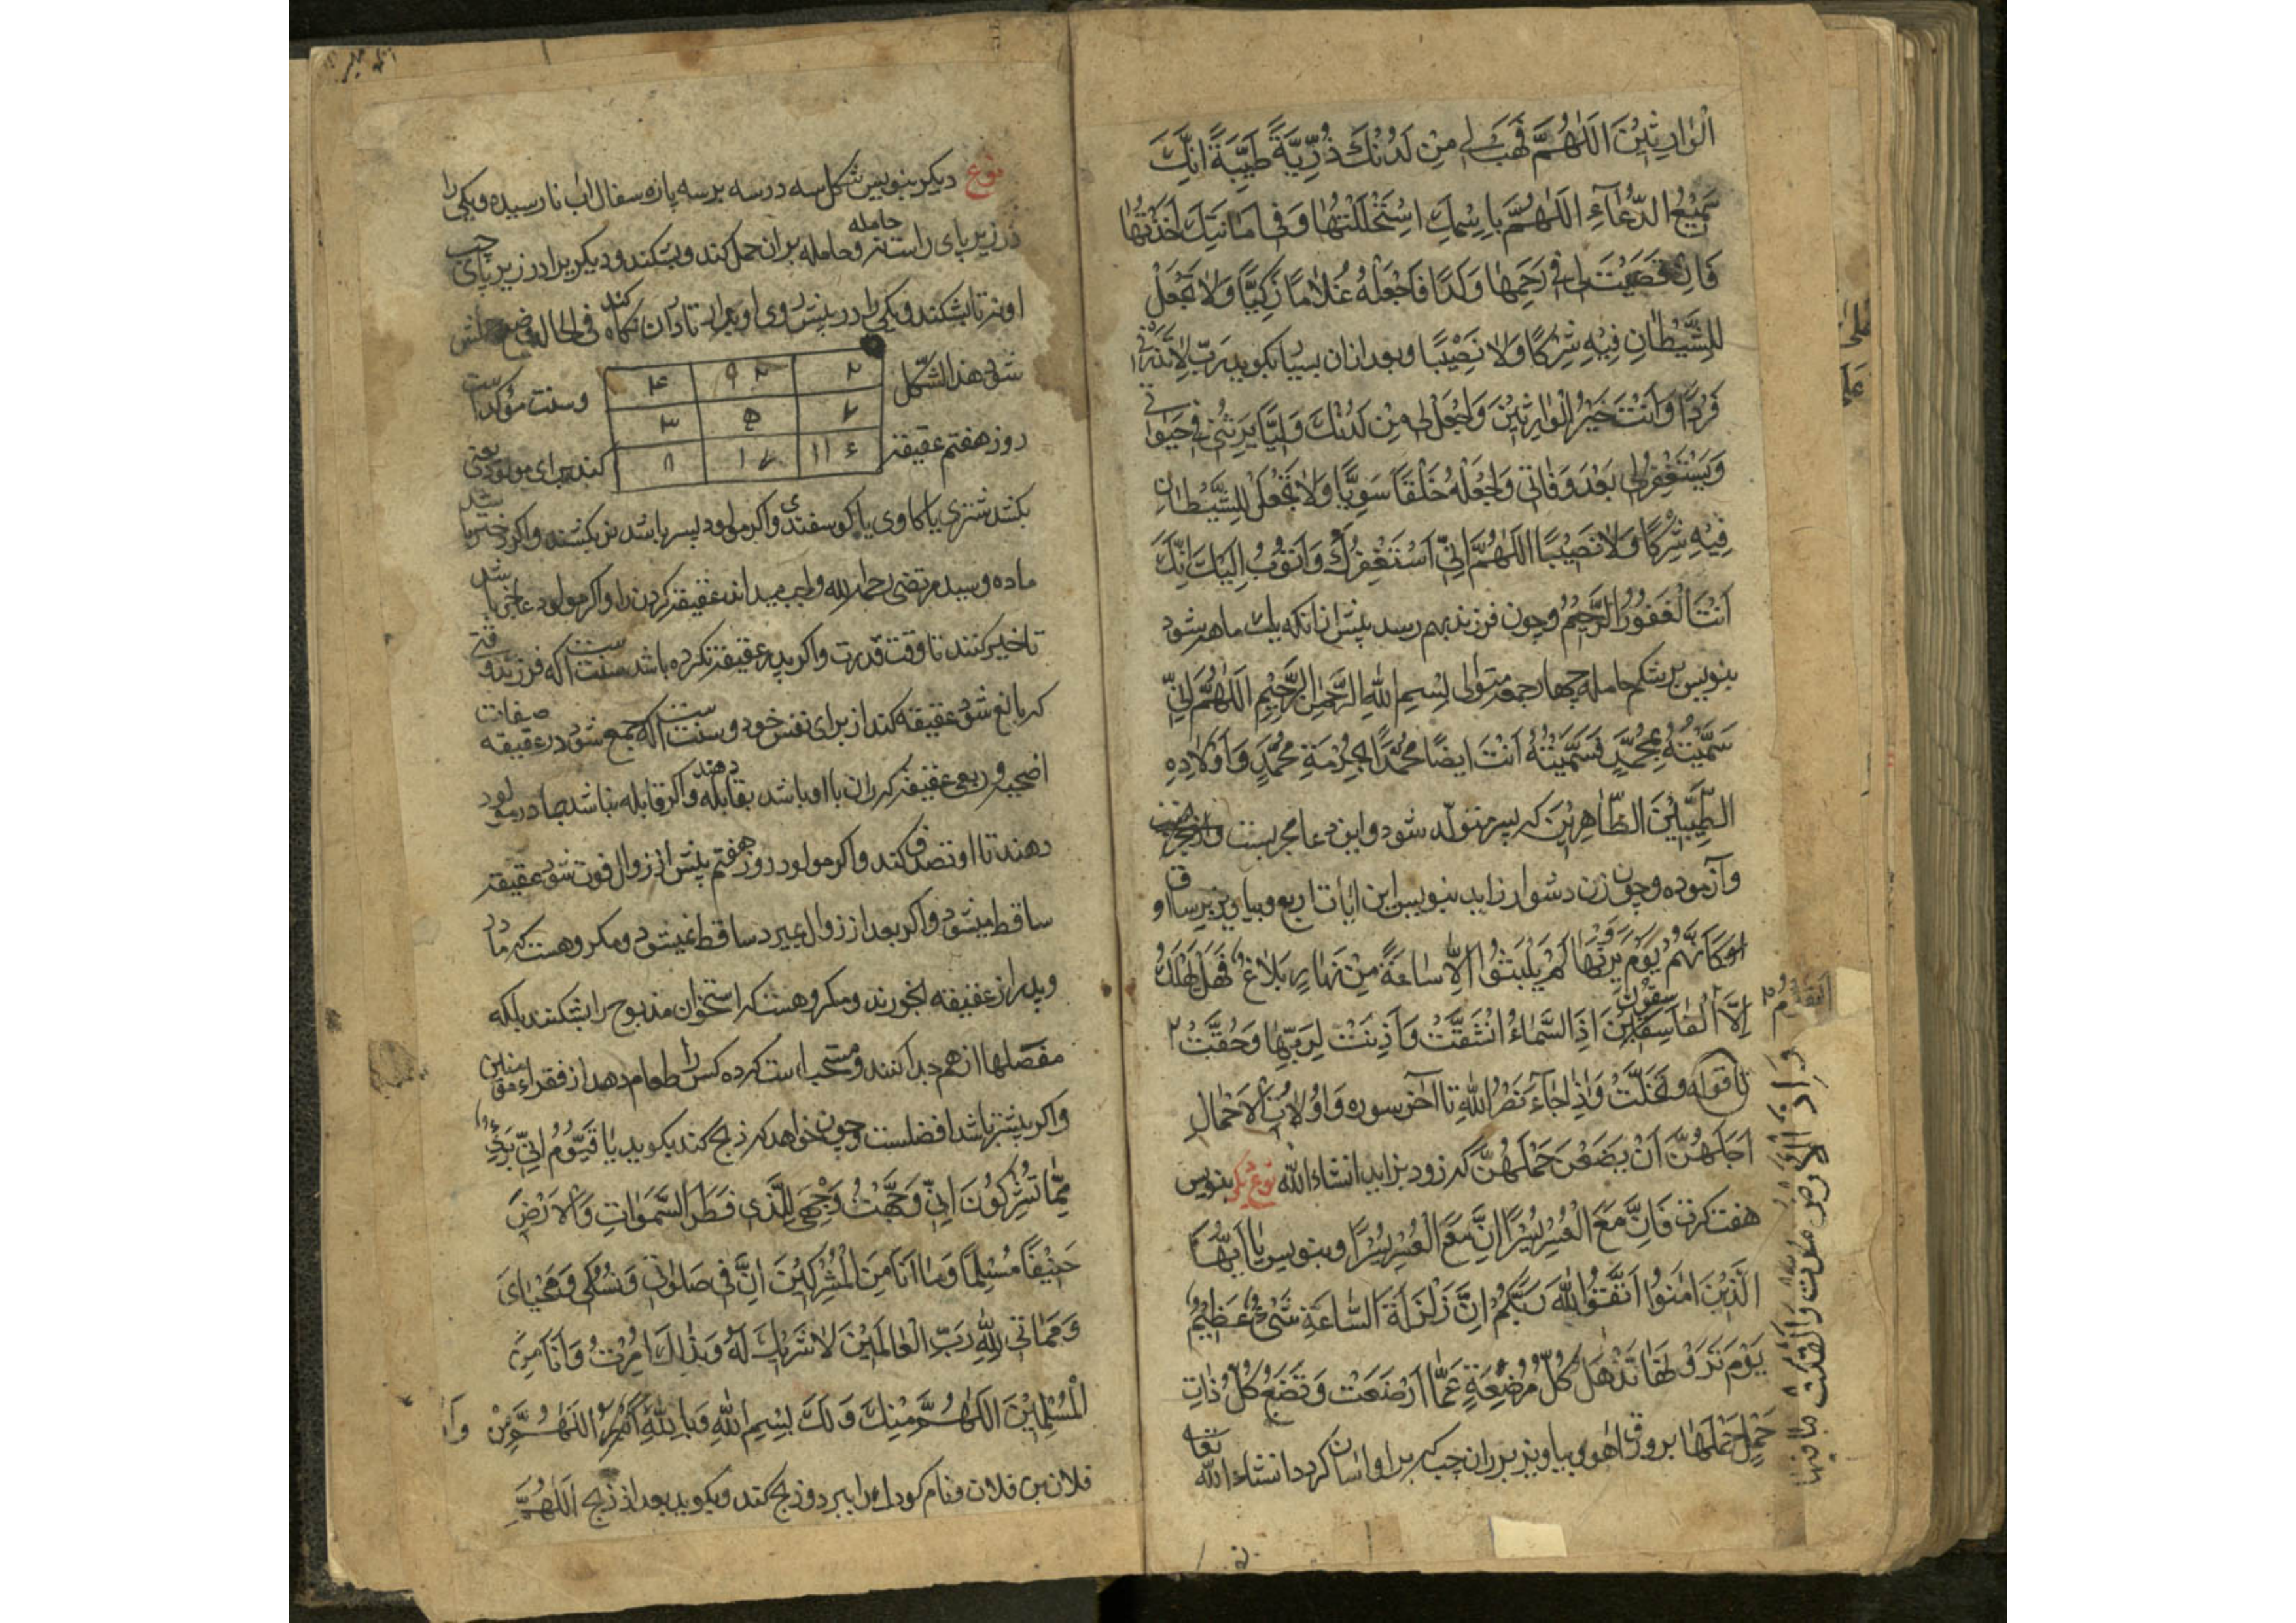 الْوَارِثِيْنَ اَللّٰهُمَّ فَهَبْ لِي مِنْ لَدُنْكَ ذُرِّيَّةً طَيِّبَةً اِنَّكَ
سَمِيْعُ الدُّعَآءِ اَللّٰهُمَّ بِاِسْمِكَ اسْتَحْلَلْتُهَا وَفِي اَمَانَتِكَ اَخَذْتُهَا
فَاِنْ قَضَيْتَ لِي فِي رَحِمِهَا وَلَدًا فَاجْعَلْهُ غُلَامًا زَكِيًّا وَلَا تَجْعَلْ
لِلشَّيْطَانِ فِيْهِ شِرْكًا وَلَا نَصِيْبًا وبعد ازان بسیار بکوید رَبِّ لَا تَذَرْنِي
فَرْدًا وَاَنْتَ خَيْرُ الْوَارِثِيْنَ وَاجْعَلْ لِي مِنْ لَدُنْكَ وَلِيًّا يَرِثُنِي فِي حَيٰوتِي
وَيَسْتَغْفِرُ لِي بَعْدَ وَفَاتِي وَاجْعَلْهُ خَلْقًا سَوِيًّا وَلَا تَجْعَلْ لِلشَّيْطَانِ
فِيْهِ شِرْكًا وَلَا نَصِيْبًا اَللّٰهُمَّ اِنِّي اَسْتَغْفِرُكَ وَاَتُوْبُ اِلَيْكَ اِنَّكَ
اَنْتَ الْغَفُوْرُ الرَّحِيْمُ وچون فرزند بهم رسد پیش ازانکه یک ماهه شود
بنویس بر شکم حامله چهار جمعه متوالی بِسْمِ اللهِ الرَّحْمٰنِ الرَّحِيْمِ اَللّٰهُمَّ اِنِّي
سَمَّيْتُهُ بِمُحَمَّدٍ فَسَمَّيْتَهُ اَنْتَ اَيضًا مُحَمَّدًا بِحُرْمَةِ مُحَمَّدٍ وَاَوْلَادِهِ
الطَّيِّبِيْنَ الطَّاهِرِيْنَ که پسر متولد شود واین دعا مجربست
وآزموده وچون زن دشوار زاید بنویس این ایات اربع وبیاویز بر ساق او
كَاَنَّهُمْ يَوْمَ يَرَوْنَهَا لَمْ يَلْبَثُوْا اِلَّا سَاعَةً مِنْ نَهَارٍ بَلَاغٌ فَهَلْ يُهْلَكُ
اِلَّا الْقَوْمُ الْفَاسِقُوْنَ اِذَا السَّمَاءُ انْشَقَّتْ وَاَذِنَتْ لِرَبِّهَا وَحُقَّتْ ٢
تا قوله وتَخَلَّتْ وَاِذَا جَآءَ نَصْرُ اللهِ تا آخر سوره وَاُوْلَاتُ الْاَحْمَالِ
اَجَلُهُنَّ اَنْ يَضَعْنَ حَمْلَهُنَّ که زود بزاید انشاء الله نوع دیکر بنویس
هفت کرت فَاِنَّ مَعَ الْعُسْرِ يُسْرًا اِنَّ مَعَ الْعُسْرِ يُسْرًا وبنویس يَا اَيُّهَا
الَّذِيْنَ اٰمَنُوْا اتَّقُوا اللهَ رَبَّكُمْ اِنَّ زَلْزَلَةَ السَّاعَةِ شَيْءٌ عَظِيْمٌ
يَوْمَ تَرَوْنَهَا تَذْهَلُ كُلُّ مُرْضِعَةٍ عَمَّا اَرْضَعَتْ وَتَضَعُ كُلُّ ذَاتِ
حَمْلٍ حَمْلَهَا بر ورق اهو وبیاویز بر ران چپ که بر او اسان کردد انشاء الله تعالی
وَاِذَا الْاَرْضُ مُدَّتْ وَاَلْقَتْ مَا فِيْهَا
نوع دیکر بنویس شکل سه در سه بر سه پاره سفال اب نارسیده ویکی را
در زیر پای راست نه وحامله بران حمل کند وبشکند ودیکریرا در زیر پای چپ
او نه تا بشکند ویکی را در پیش روی او بدار تا دران نکاه کند فی الحال وضع حملش
شود هذا الشکل وسنت مؤکد است
۴ ۹ ۲
۳ ۵ ۷
۸ ۱ ۶
روز هفتم عقیقه کند برای مولود یعنی
بکشد شتری یا کاوی یا کوسفندی واکر مولود پسر باشد نر بکشند واکر دختر باشد
ماده وسید مرتضی رحمه الله واجب میداند عقیقه کردن را واکر مولود عاجز باشد
تاخیر کنند تا وقت قدرت واکر پدر عقیقه نکرده باشد سنت است که فرزند وقتی
که بالغ شود عقیقه کند از برای نفس خود وسنت است که جمع شود در عقیقه صفات
اضحیه وربعی عقیقه که ران با او باشد بقابله دهند واکر قابله نباشد بمادر مولود
دهند تا او تصدق کند واکر مولود روز هفتم پیش از زوال فوت شود عقیقه
ساقط میشود واکر بعد از زوال بمیرد ساقط نمیشود ومکروهست که مادر
وپدر از عقیقه بخورند ومکروهست که استخوان مذبوح را بشکنند بلکه
مفصلها از هم جدا کنند ومستحب است که ده کس را طعام دهد از فقراء مؤمنین
واکر بیشتر باشد افضلست وچون خواهد که ذبح کند بکوید يَا قَوْمِ اِنِّي بَرِيْءٌ
مِمَّا تُشْرِكُوْنَ اِنِّي وَجَّهْتُ وَجْهِيَ لِلَّذِي فَطَرَ السَّمٰوَاتِ وَالْاَرْضَ
حَنِيْفًا مُسْلِمًا وَمَا اَنَا مِنَ الْمُشْرِكِيْنَ اِنَّ صَلٰوتِي وَنُسُكِي وَمَحْيَايَ
وَمَمَاتِي لِلّٰهِ رَبِّ الْعَالَمِيْنَ لَا شَرِيْكَ لَهُ وَبِذٰلِكَ اُمِرْتُ وَاَنَا مِنَ
الْمُسْلِمِيْنَ اَللّٰهُمَّ مِنْكَ وَلَكَ بِسْمِ اللهِ وَبِاللهِ اَللّٰهُمَّ
فلان بن فلان ونام کودک را ببرد وذبح کند وبکوید بعد از ذبح اَللّٰهُمَّ